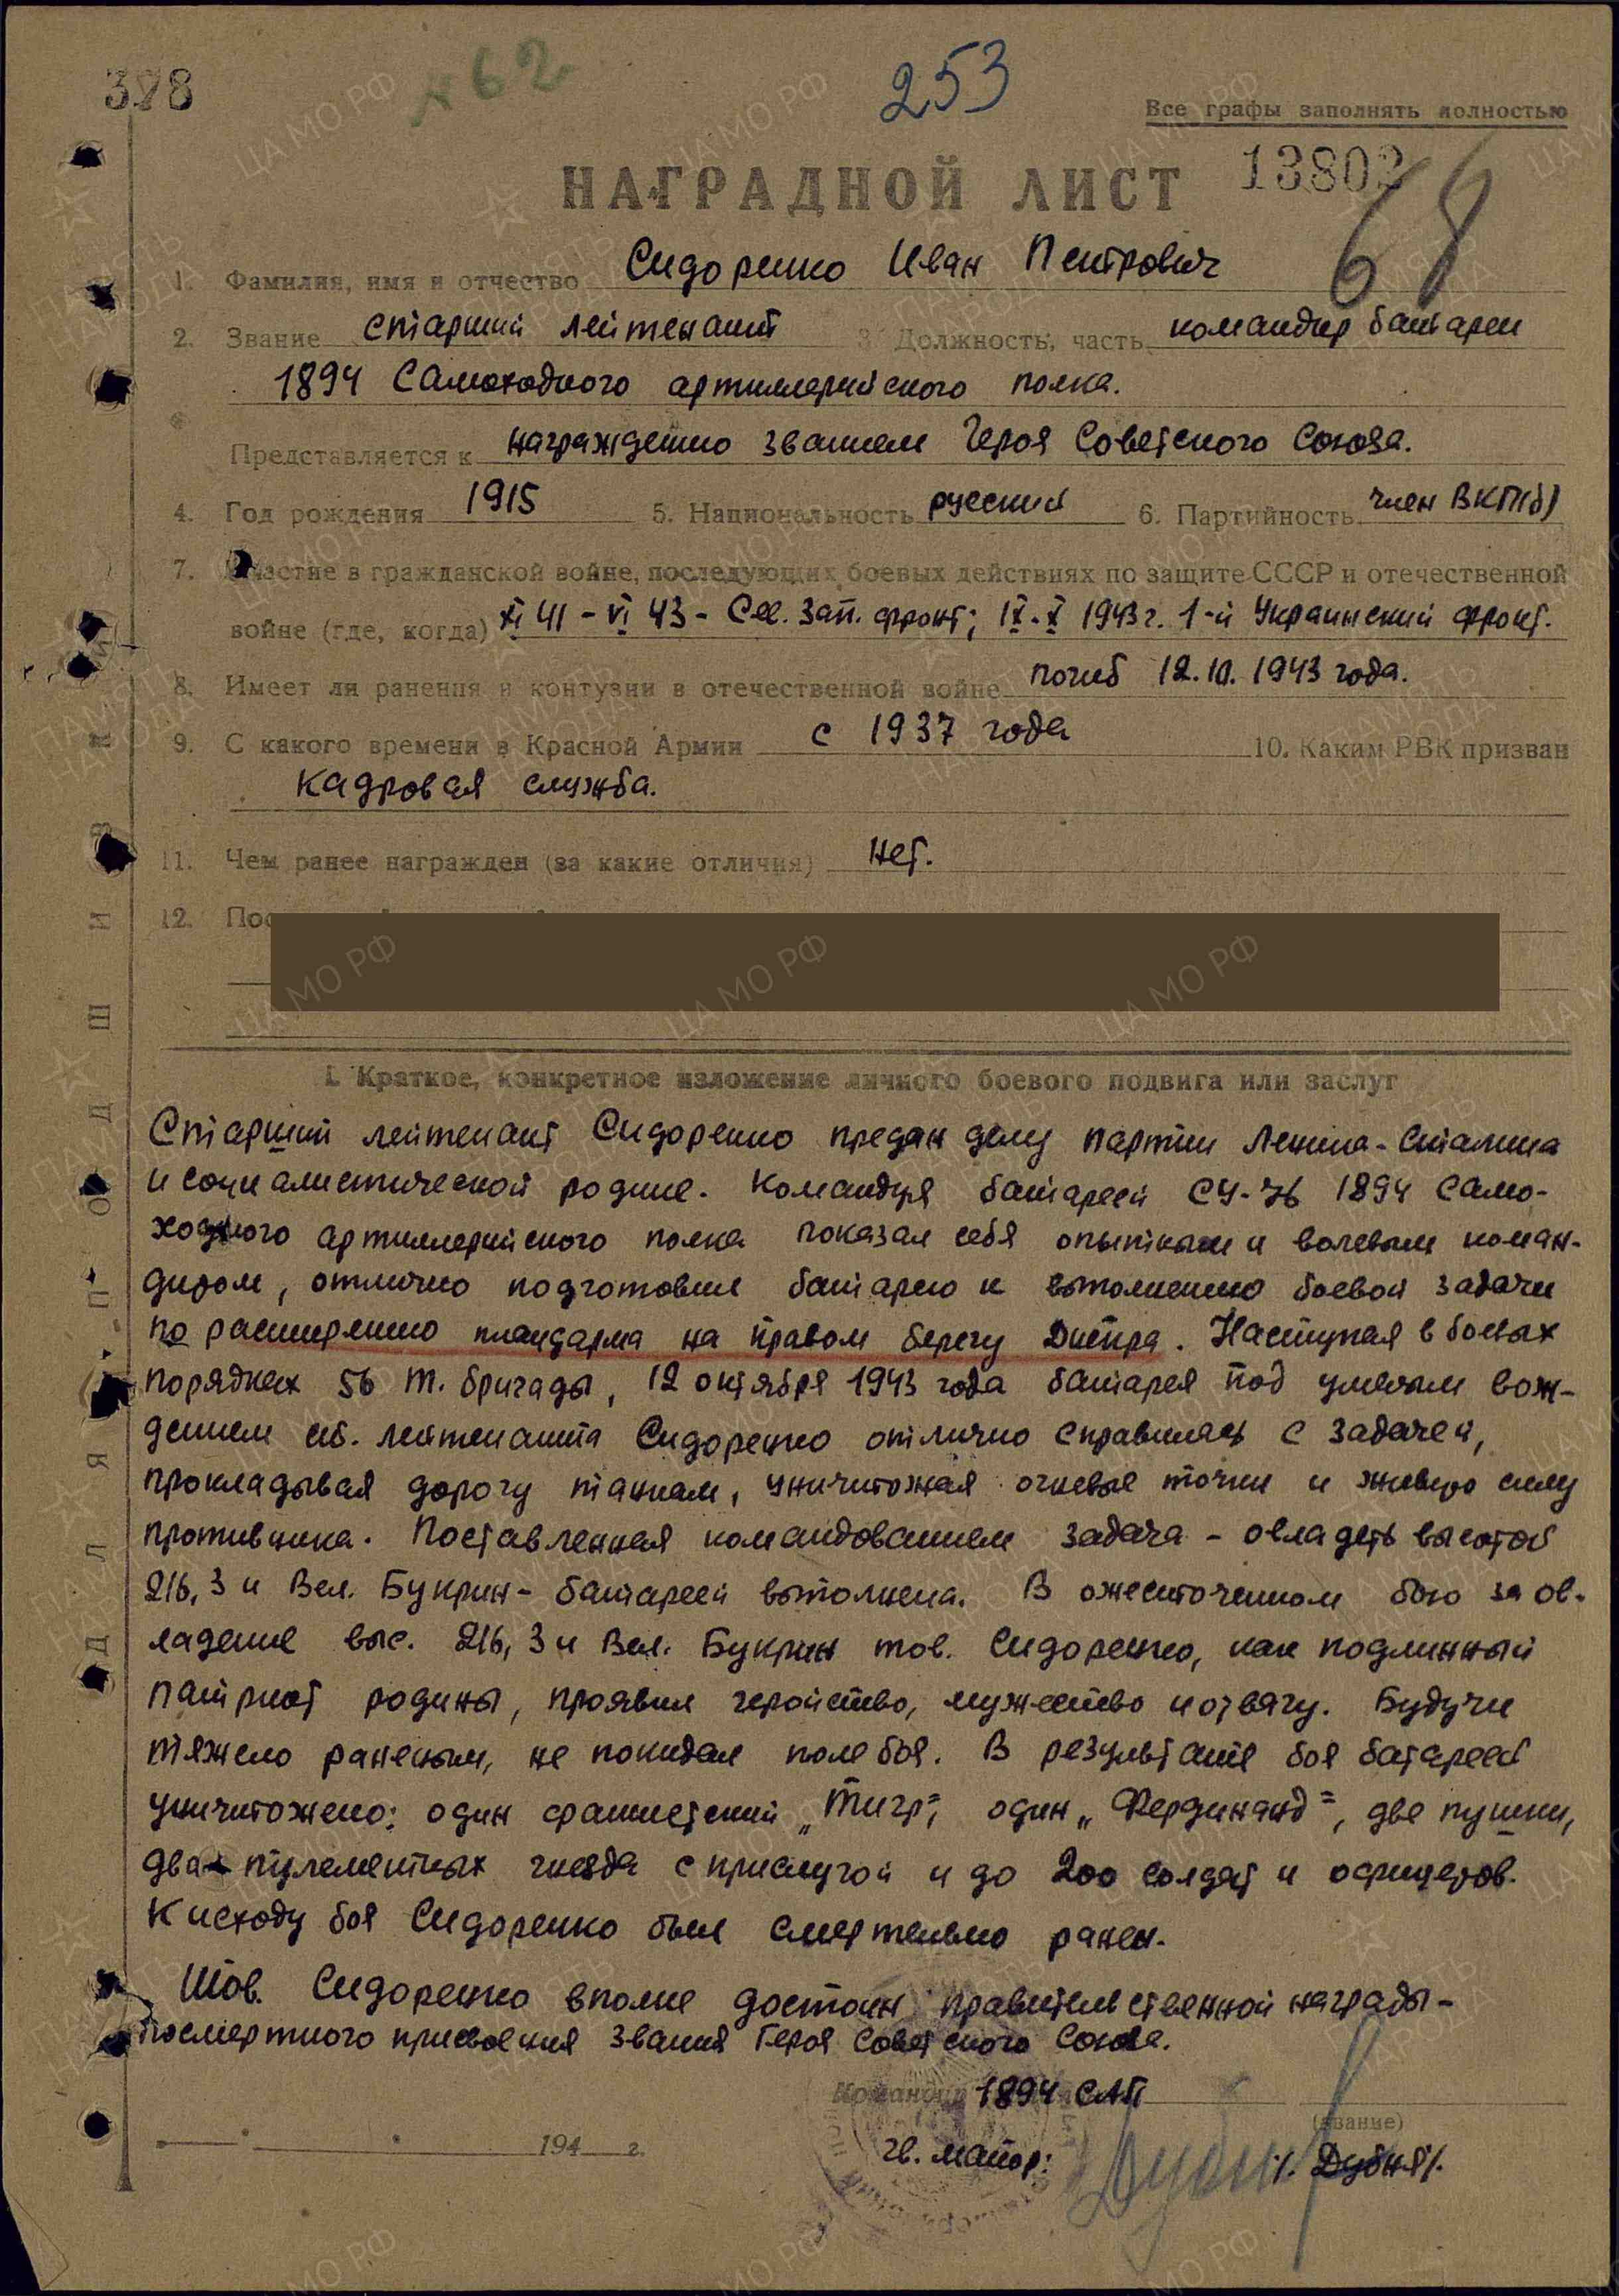 378
№ 62
253
Все графы заполнять полностью
13802
68
НАГРАДНОЙ ЛИСТ
1. Фамилия, имя и отчество Сидоренко Иван Петрович
2. Звание старший лейтенант 3. Должность, часть командир батареи
1894 самоходного артиллерийского полка.
Представляется к награждению званием Героя Советского Союза.
4. Год рождения 1915 5. Национальность русский 6. Партийность член ВКП(б)
7. Участие в гражданской войне, последующих боевых действиях по защите СССР и отечественной
войне (где, когда) XI 41 - VI 43 - Сев. Зап. фронт; IX-X 1943 г. 1-й Украинский фронт.
8. Имеет ли ранения и контузии в отечественной войне погиб 12.10.1943 года.
9. С какого времени в Красной Армии с 1937 года 10. Каким РВК призван
кадровая служба.
11. Чем ранее награжден (за какие отличия) Нет.
12.
I. Краткое, конкретное изложение личного боевого подвига или заслуг
Старший лейтенант Сидоренко предан делу партии Ленина-Сталина
и социалистической родине. Командуя батареей СУ-76 1894 само-
ходного артиллерийского полка показал себя опытным и волевым коман-
диром, отлично подготовил батарею к выполнению боевой задачи
по расширению плацдарма на правом берегу Днепра. Наступая в боевых
порядках 56 т. бригады, 12 октября 1943 года батарея под умелым вож-
дением ст. лейтенанта Сидоренко отлично справилась с задачей,
прокладывая дорогу танкам, уничтожая огневые точки и живую силу
противника. Поставленная командованием задача - овладеть высотой
216,3 и Вел. Букрин - батареей выполнена. В ожесточенном бою за ов-
ладение выс. 216,3 и Вел. Букрин тов. Сидоренко, как подлинный
патриот родины, проявил геройство, мужество и отвагу. Будучи
тяжело раненым, не покидал поле боя. В результате боя батареей
уничтожено: один фашистский „Тигр", один „Фердинанд", две пушки,
два пулеметных гнезда с прислугой и до 200 солдат и офицеров.
К исходу боя Сидоренко был смертельно ранен.
Тов. Сидоренко вполне достоин правительственной награды -
посмертного присвоения звания Героя Советского Союза.
Командир 1894 САП
(звание)
194 г.
гв. майор: /. Дубня/.
ДЛЯ ПОДШИВКИ
ЦА МО РФ
ПАМЯТЬ НАРОДА